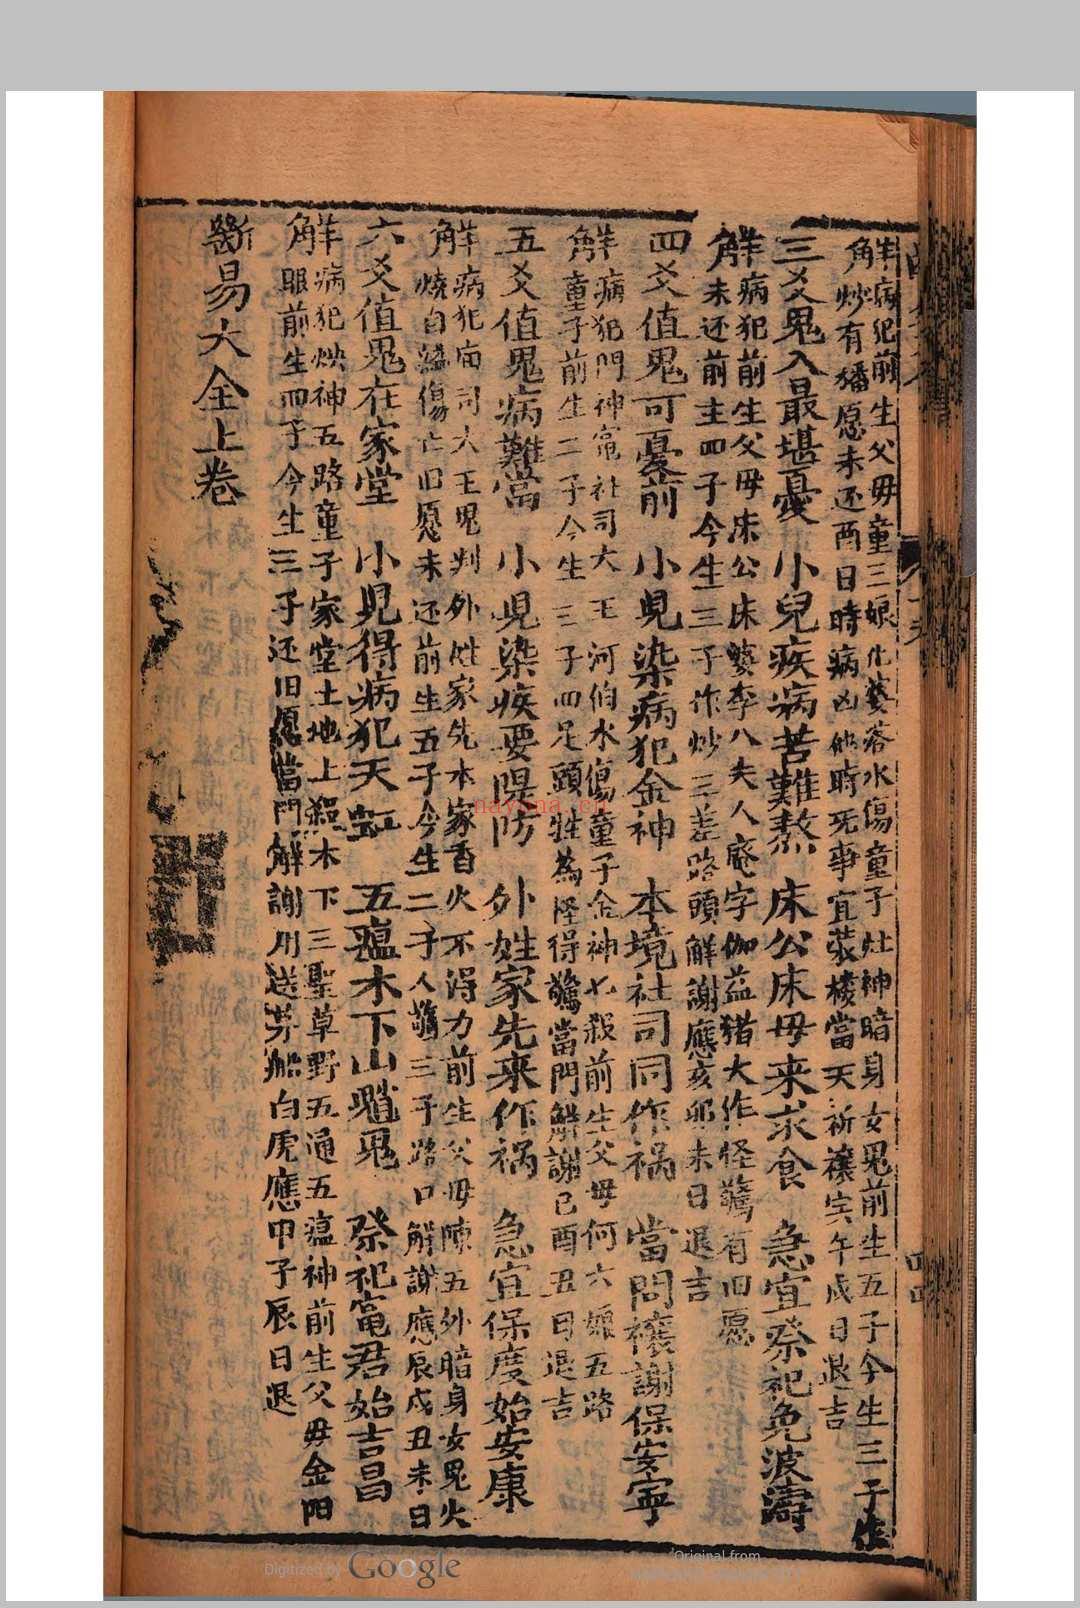 解病犯前生父母童三娘化婆落水傷童子灶神暗身女鬼前生五子今生三子作
炒有猪愿未还酉日時病凶他時死事宜當天祈禳寅午戌日退吉
三爻鬼入最堪憂 小兒疾病苦難熬 床公床母来求食 急宜祭祀免波濤
解病犯前生父母床公床婆李八夫人庵字伽益猪犬作怪驚有旧愿
未还前主四子今生三子作炒三差路頭解謝應亥卯未日退吉
四爻值鬼可憂前 小児染病犯金神 本境社司同作禍 當問禳謝保安寧
解病犯門神竈社司大王河伯水傷童子金神七殺前生父母何六娘五路
童子前生二子今生三子四足頭牲為怪得驚當門解謝巳酉丑日退吉
五爻值鬼病難當 小児染疾要隄防 外姓家先来作禍 急宜保度始安康
解病犯庙司大王鬼判外姓家先本家香火不淂力前生父母陳五外暗身女鬼火
燒自縊傷亡旧愿未还前生五子今生二子人驚三子路口解謝應辰戌丑未日
六爻值鬼在家堂 小児得病犯天虹 五瘟木下山魈鬼 祭祀竈君始吉昌
解病犯殃神五路童子家堂土地上殺木下三聖草野五通五瘟神前生父毋金阳
眼前生四子今生三子还旧愿當門解謝用送芳船白虎應申子辰日退
斷易大全上卷
nayona.cn
Digitized by Google
Original from